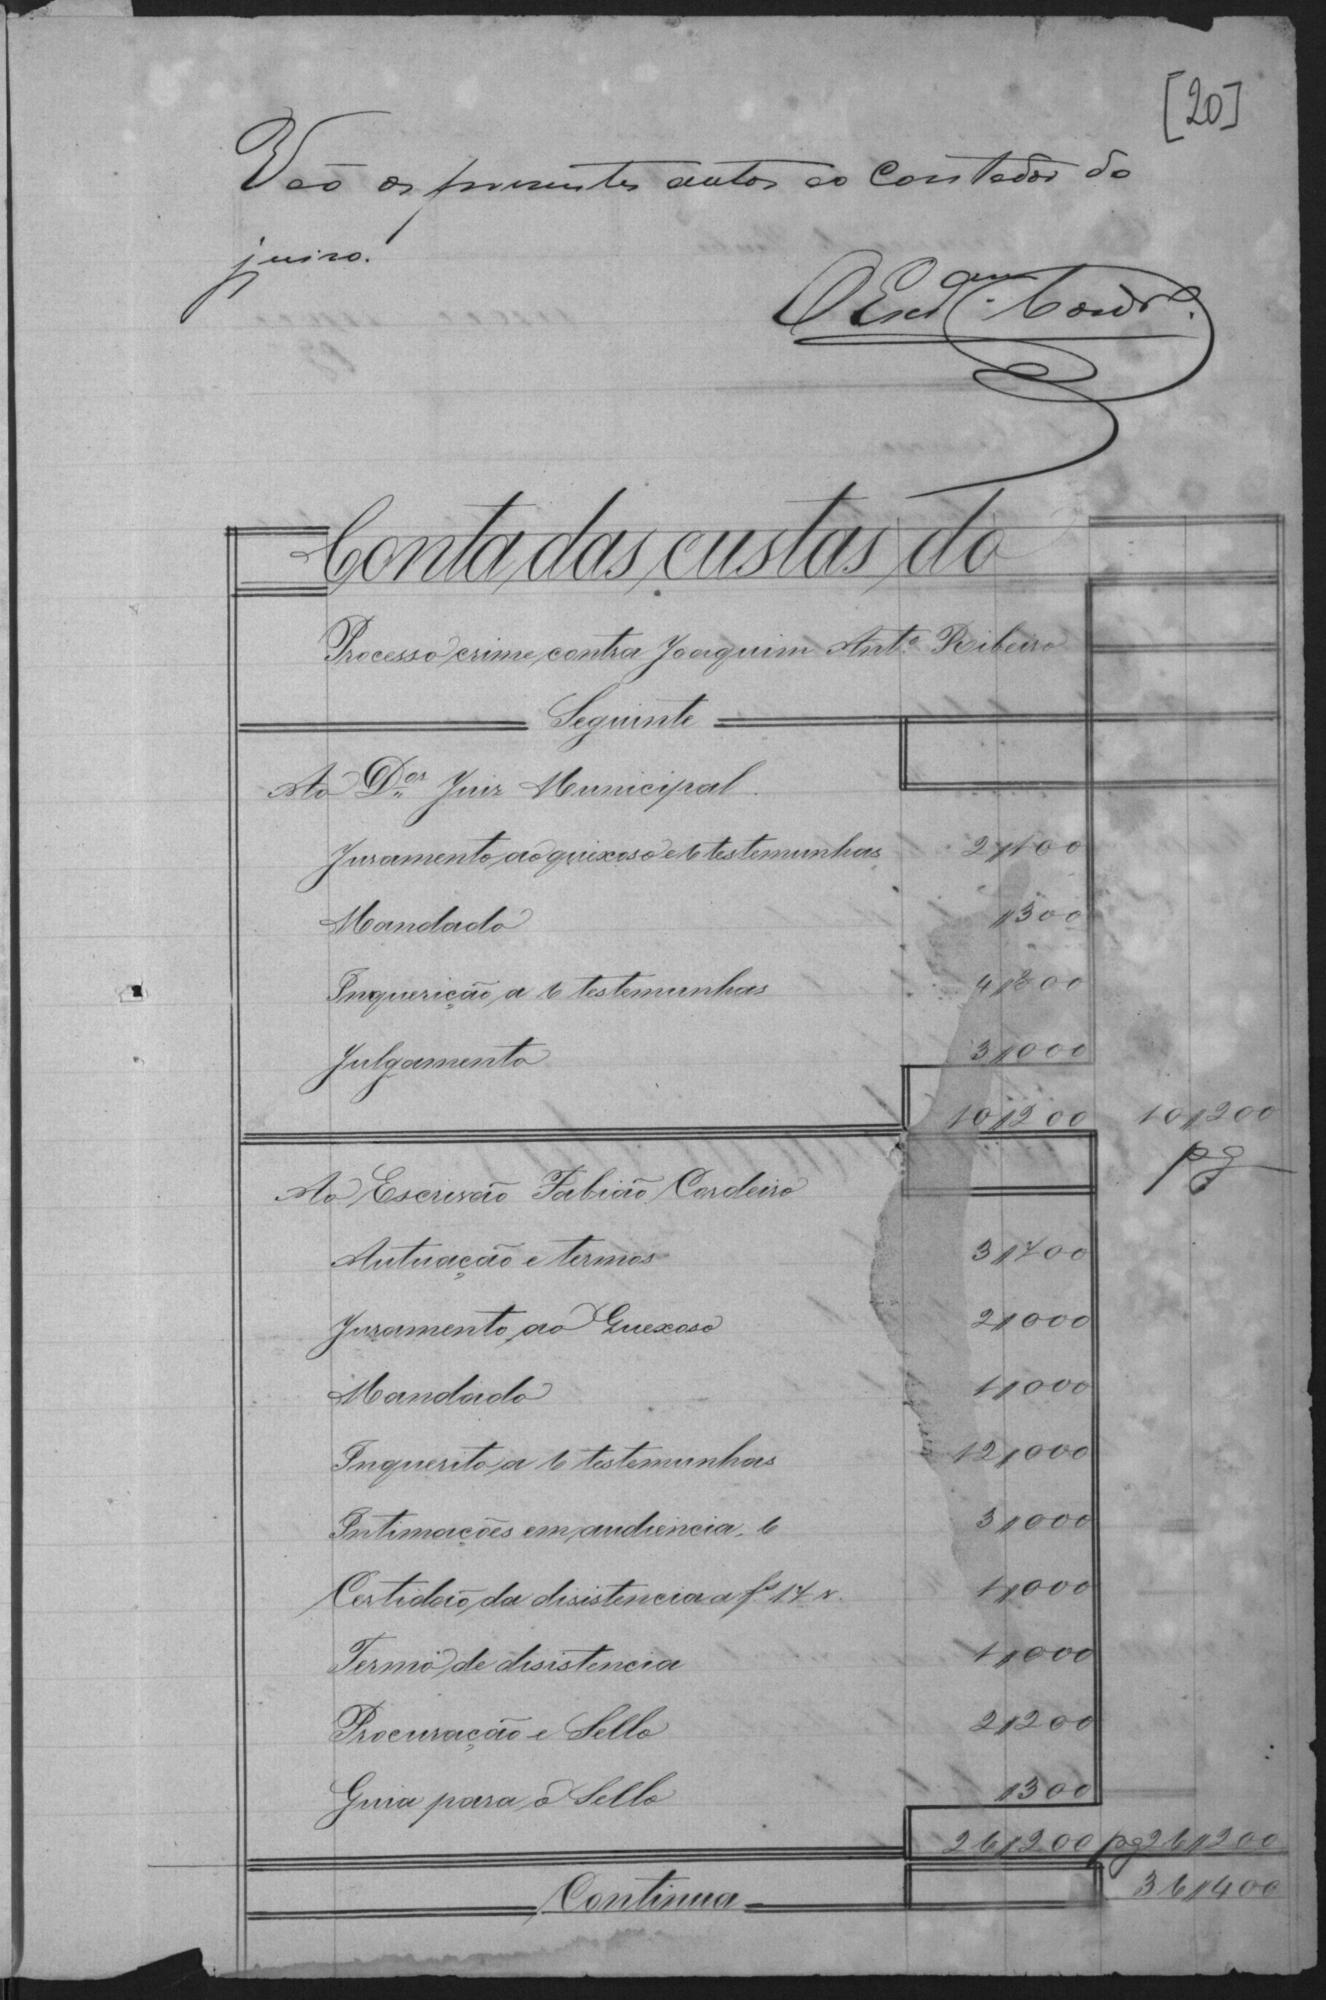 [20]
Vão os presentes autos ao Contador do
juizo.
O Escam. Cordr.
Conta das custas do
Processo crime contra Joaquim Anto. Ribeiro
Seguinte
Ao Dor. Juiz Municipal.
Juramento ao queixoso e 6 testemunhas 2,100
Mandado ,300
Inquerição a 6 testemunhas 4,800
Julgamento 3,000
10,200 10,200
pg
Ao Escrivão Fabião Cordeiro
Autuação e termos 3,700
Juramento ao Quexoso 2,000
Mandado 1,000
Inquerito a 6 testemunhas 12,000
Intimações em audiencia, 6 3,000
Certidão da disistencia a fs 17 v. 1,000
Termo de disistencia 1,000
Procuração e Sello 2,200
Guia para o Sello ,300
26,200 pg 26,200
Continua 36,400